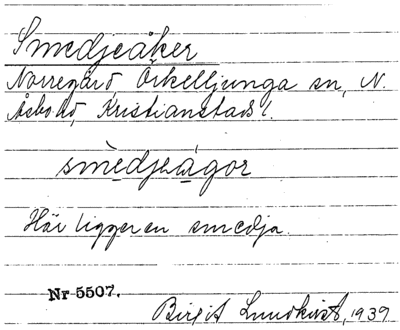 Smedjeåker
Norregård, Örkelljunga sn, N.
Åsbo hd, Kristianstads l.
smèdjeágor
Här ligger en smedja.
Nr 5507.
Birgit Lundkvist, 1939